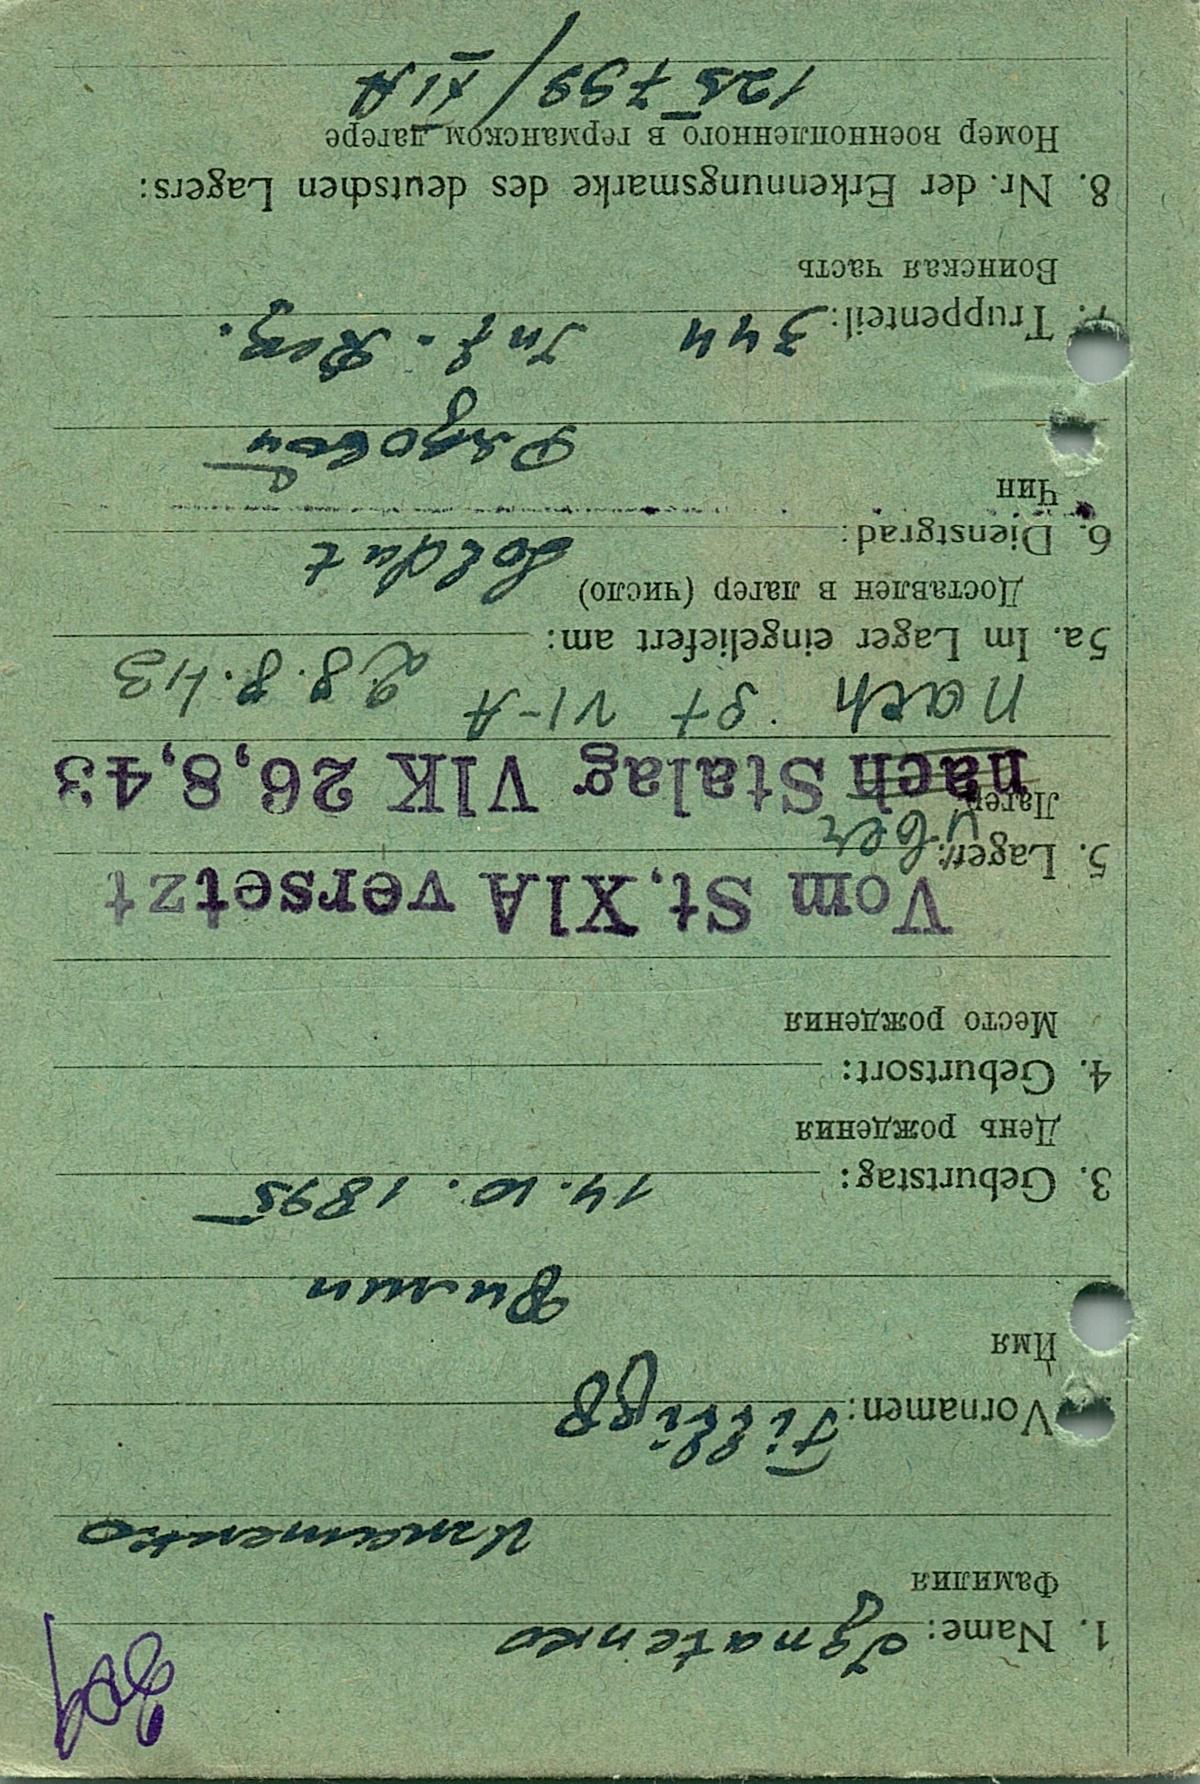 1. Name: Ignatenko
Фамилия
Игнатенко
Vornamen:
Имя
3. Geburtstag: 14. 10. 1895
День рождения
4. Geburtsort:
Место рождения
Vom St. XIA versetzt
5. Lager: über
Лагерь
nach Stalag VIK 26,8,43
nach St VI-A 28.8.43
5a. Im Lager eingeliefert am:
Доставлен в лагерь (число)
6. Dienstgrad: Soldat
Чин
Рядовой
7. Truppenteil: 344 Inf.-Reg.
Воинская часть
8. Nr. der Erkennungsmarke des deutschen Lagers:
Номер военнопленного в германском лагере
125 799/XI A